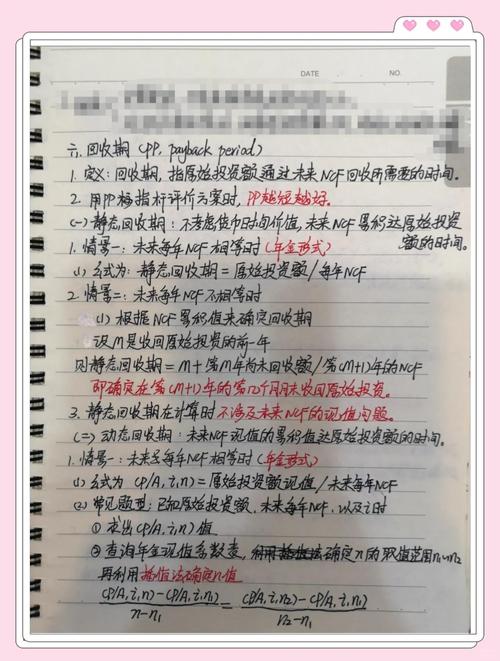 DATE NO.
六. 回收期 (PP, payback period)
1. 定义: 回收期, 指原始投资额通过未来NCF回收所需要的时间。
2. 用PP指标评价方案时, PP越短越好。
(一) 静态回收期: 不考虑货币时间价值, 未来NCF累积达原始投资
额的时间。
1. 情景一: 未来每年NCF相等时 (年金形式)
(1) 公式为: 静态回收期 = 原始投资额 / 每年NCF
2. 情景二: 未来每年NCF不相等时
(1) 根据NCF累积值来确定回收期
设M是收回原始投资的前一年
则静态回收期 = M + 第M年尚未回收额 / 第(M+1)年的NCF
即确定在第(M+1)年的第几个月月末收回原始投资。
3. 静态回收期在计算时不涉及未来NCF的现值问题。
(二) 动态回收期: 未来NCF现值的累积值达原始投资额的时间。
1. 情景一: 未来每年NCF相等时 (年金形式)
(1) 公式为 (P/A, i, n) = 原始投资额现值 / 未来每年NCF
(2) 常见题型: 已知原始投资额, 未来每年NCF, 以及i时
① 求出(P/A, i, n)值
② 查询年金现值系数表, 确定n的取值范围n₁~n₂
再利用插值法确定n值
(P/A, i, n) - (P/A, i, n₁) / n - n₁ = (P/A, i, n₂) - (P/A, i, n₁) / n₂ - n₁